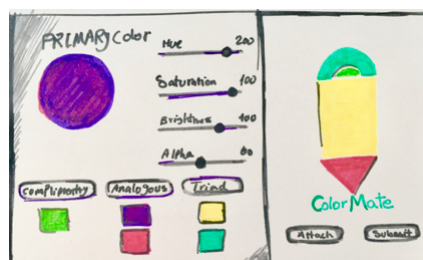 PRIMARY Color
Hue 200
Saturation 100
Brightnes 100
Alpha 60
Complimentry
Analogous
Triad
Color Mate
Attach
Submit